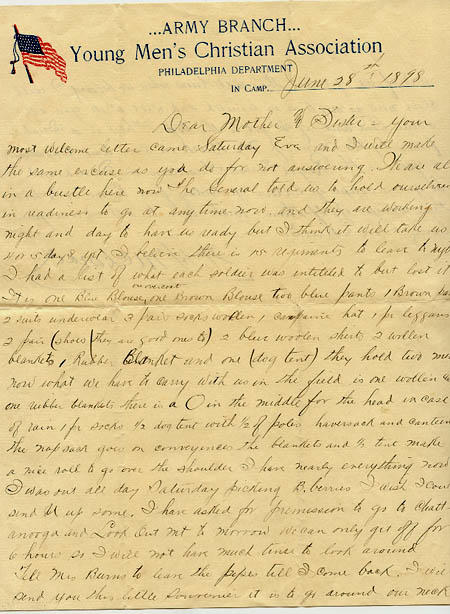 ...ARMY BRANCH...
Young Men's Christian Association
PHILADELPHIA DEPARTMENT
IN CAMP. June 28th 1898
Dear Mother & Sister - Your
most welcome letter came Saturday Eve and I will made
the same excuse as you do for not answering. We are all
in a bustle here now The General told us to hold ourselves
in readiness to go at any time now. and they are working
night and day to have us ready but I think it will take us
4 or 5 days yet I beleive there is 15 regiments to leave
I had a list of what each soldier was intitled to but lost it
It is one Blue Blouse, one Brown Blouse two blue pants 1 Brown
2 suits underwear 3 pair socks woolen, 1 campaine hat 1 pr leggans
2 pair (shoes they are good ones to) 2 blue woolen shirts 2 wollen
blankets, 1 Rubber Blanket and one (dog tent) they hold two men
now what we have to carry with us in the field is one wollen &
one rubber blankets there is a O in the middle for the head in case
of rain 1 pr socks ½ dog tent with ½ of poles haversack and canteen
the napsack goes on conveyences the blankets and ½ tent make
a nice roll to go over the shoulder I have nearly everything now
I was out all day Saturday picking B. berries I wish I could
send U up some. I have asked for premission to go to Chatt-
anooga and Look Out Mt to morrow we can only get off for
6 hours so I will not have much time to look around
Tell Mrs Burns to leave the pipes till I come back. I will
send you this little souvernier it is to go around our neck